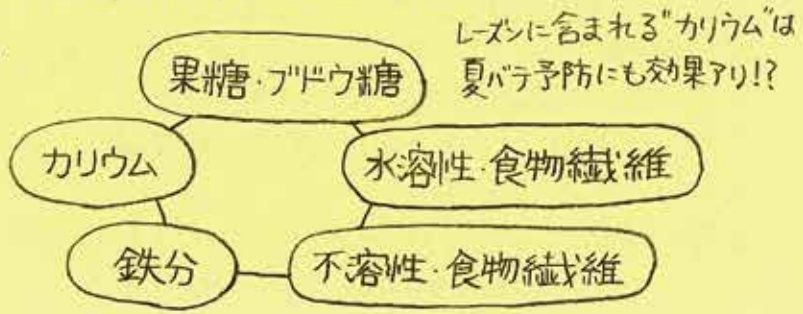 レーズンに含まれる"カリウム"は
夏バテ予防にも効果アリ!?
果糖・ブドウ糖
カリウム
水溶性・食物繊維
鉄分
不溶性・食物繊維